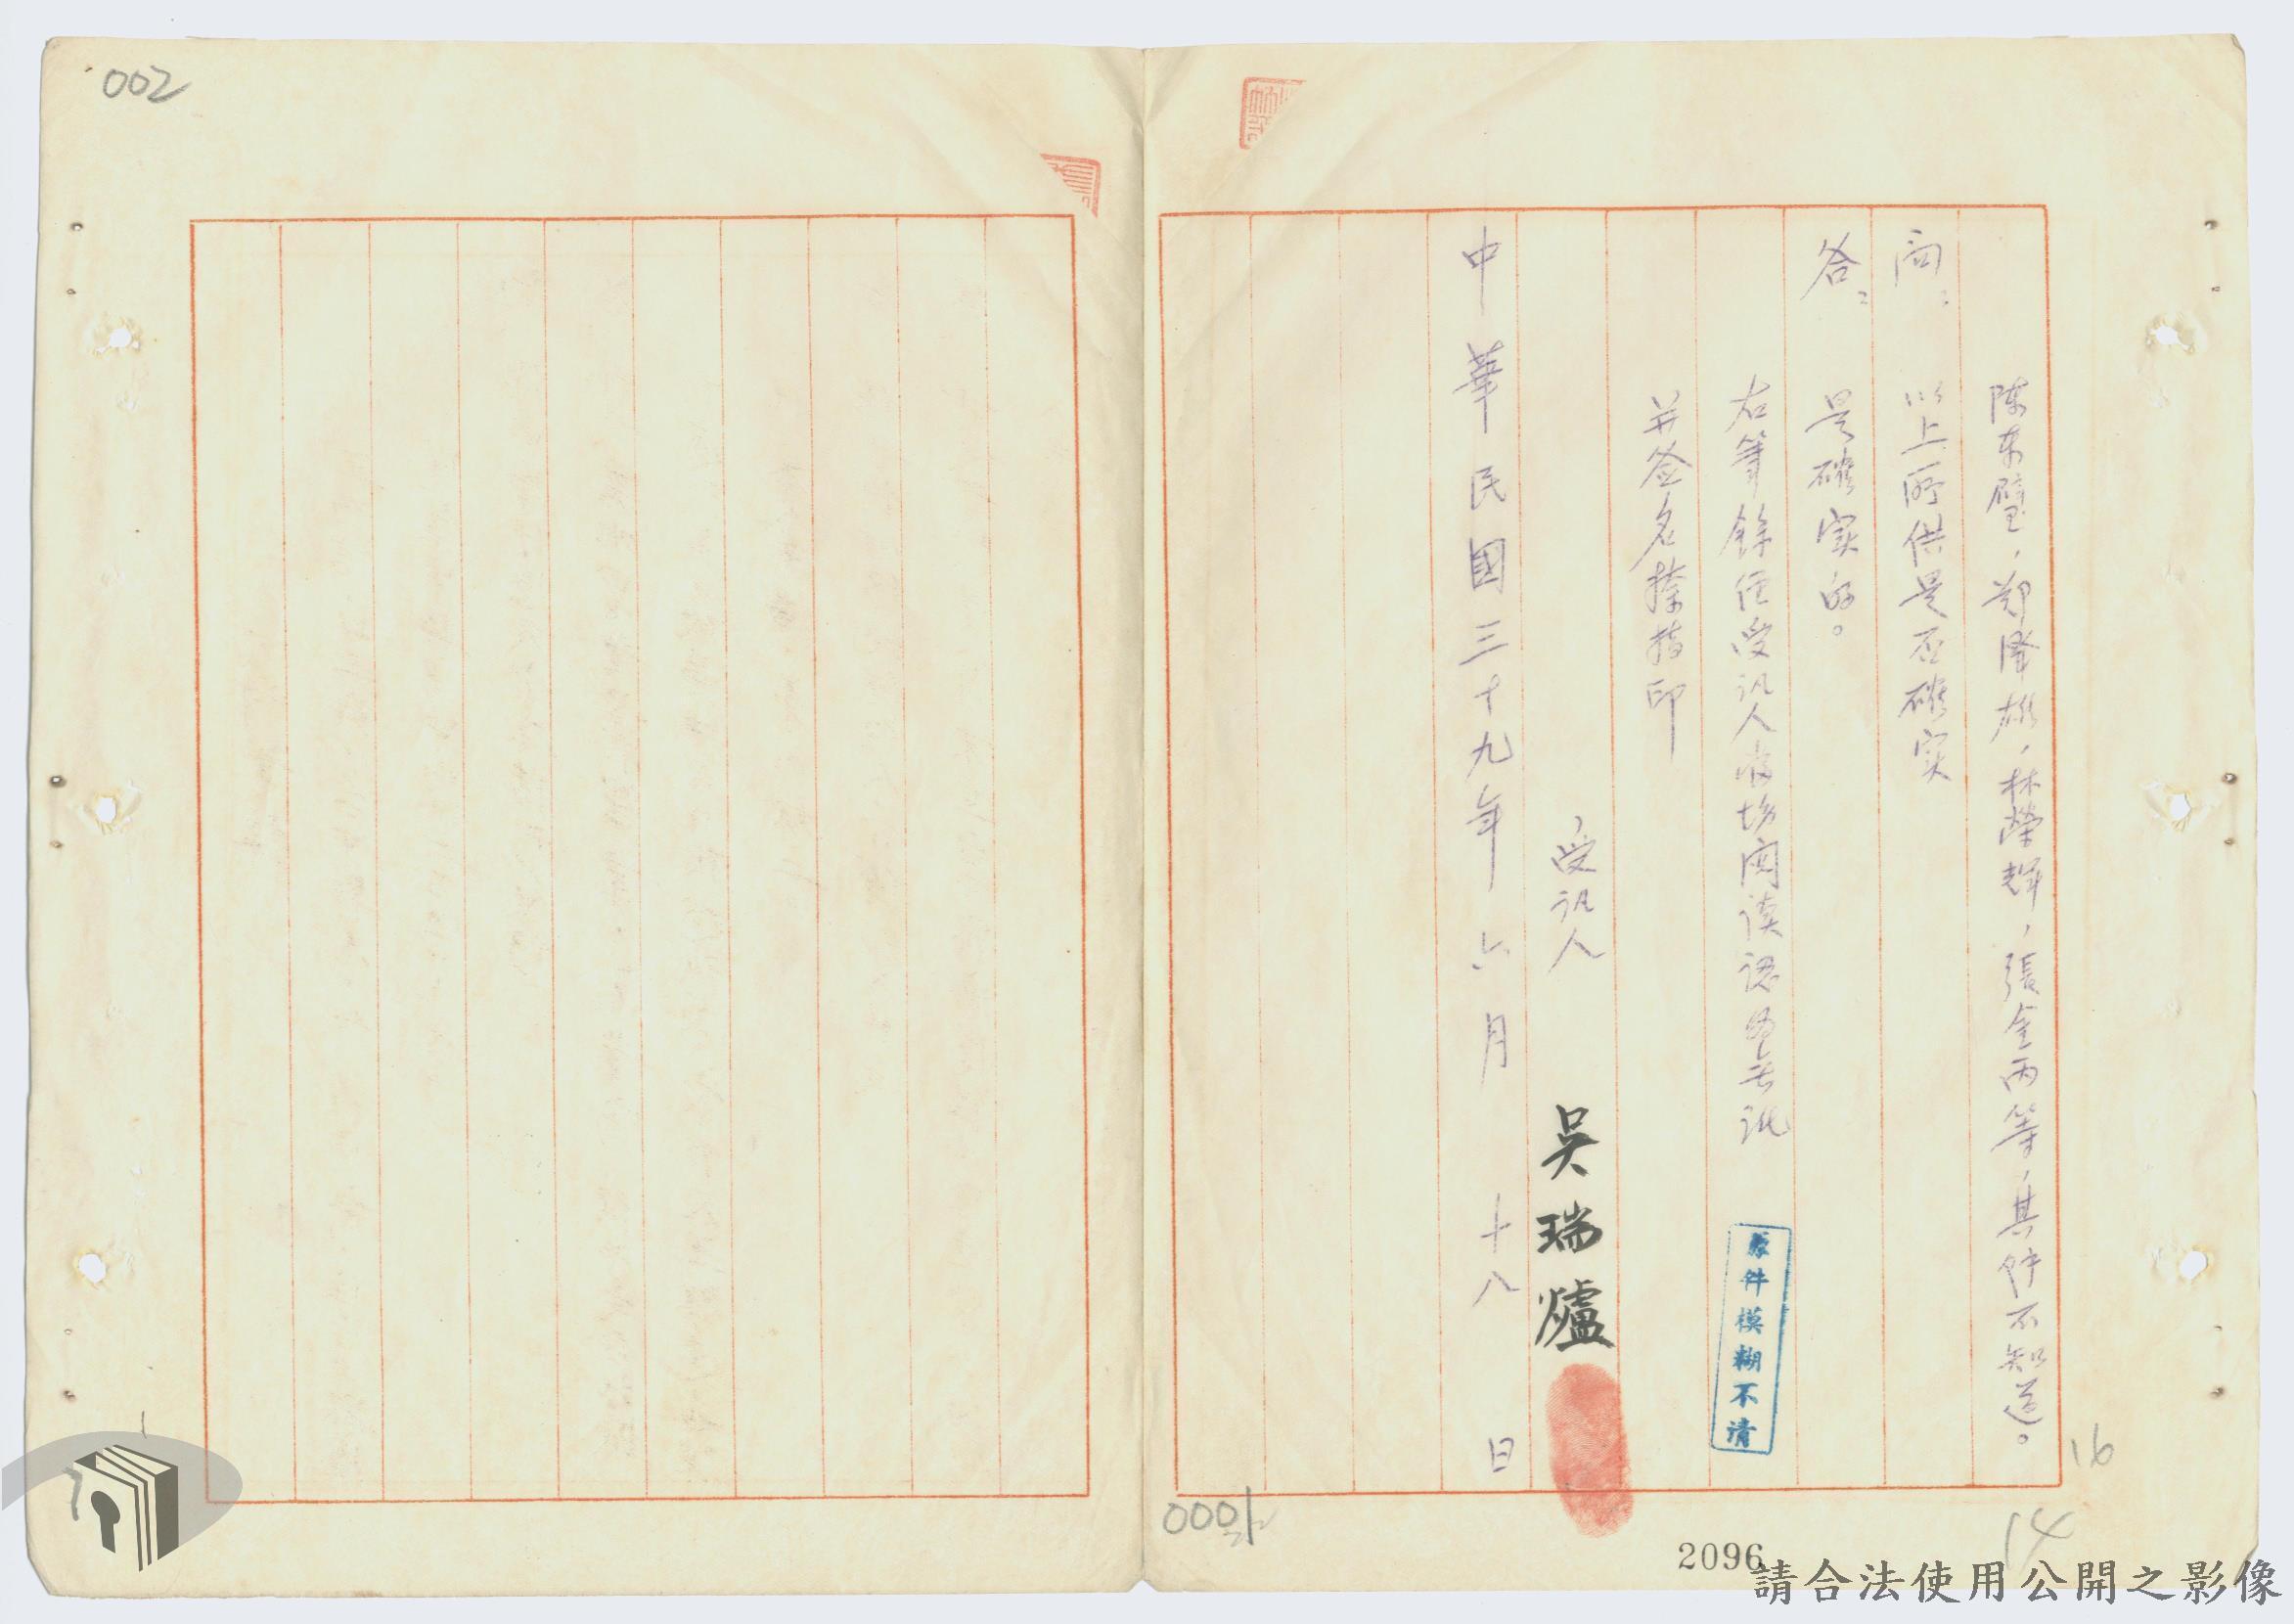 陈东璧,郑隆彬,林榮輝,張金丙等,其件不知道。
问: 以上所供是否確实
答: 是確實的。
右筆録經受讯人當塲閱读認為無讹
并簽名捺指印
受讯人 吳瑞爐
中華民國三十九年六月十八日
原件模糊不清
002
0002
2096
14
16
請合法使用公開之影像